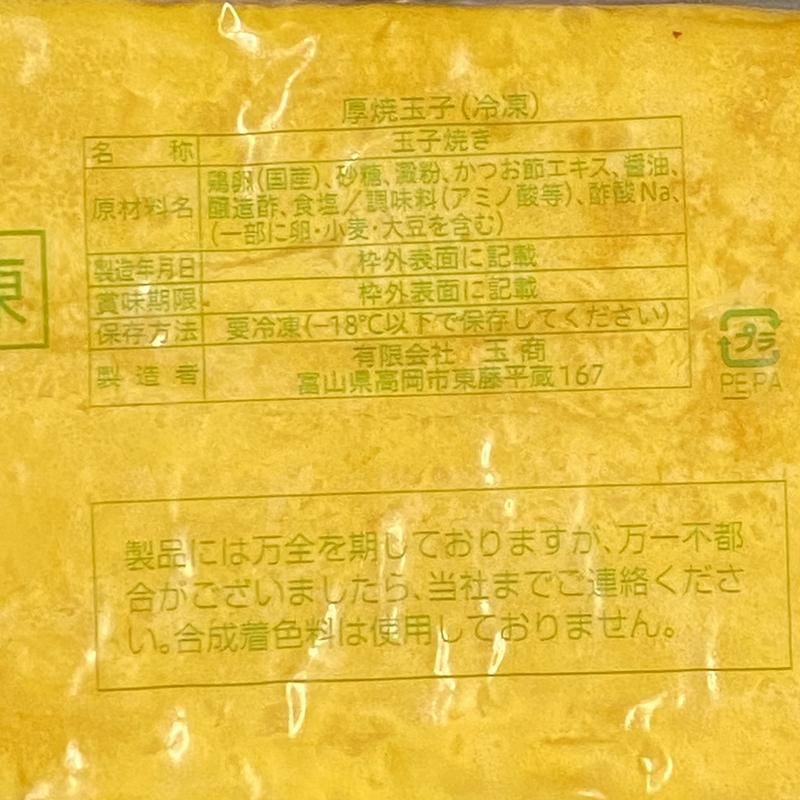 厚焼玉子(冷凍)
名称 玉子焼き
原材料名 鶏卵(国産)、砂糖、澱粉、かつお節エキス、醤油、
醸造酢、食塩/調味料(アミノ酸等)、酢酸Na、
(一部に卵・小麦・大豆を含む)
製造年月日 枠外表面に記載
賞味期限 枠外表面に記載
保存方法 要冷凍(-18℃以下で保存してください)
製造者 有限会社 玉商
富山県高岡市東藤平蔵167
凍
プラ
PE,PA
製品には万全を期しておりますが、万一不都
合がございましたら、当社までご連絡くださ
い。合成着色料は使用しておりません。